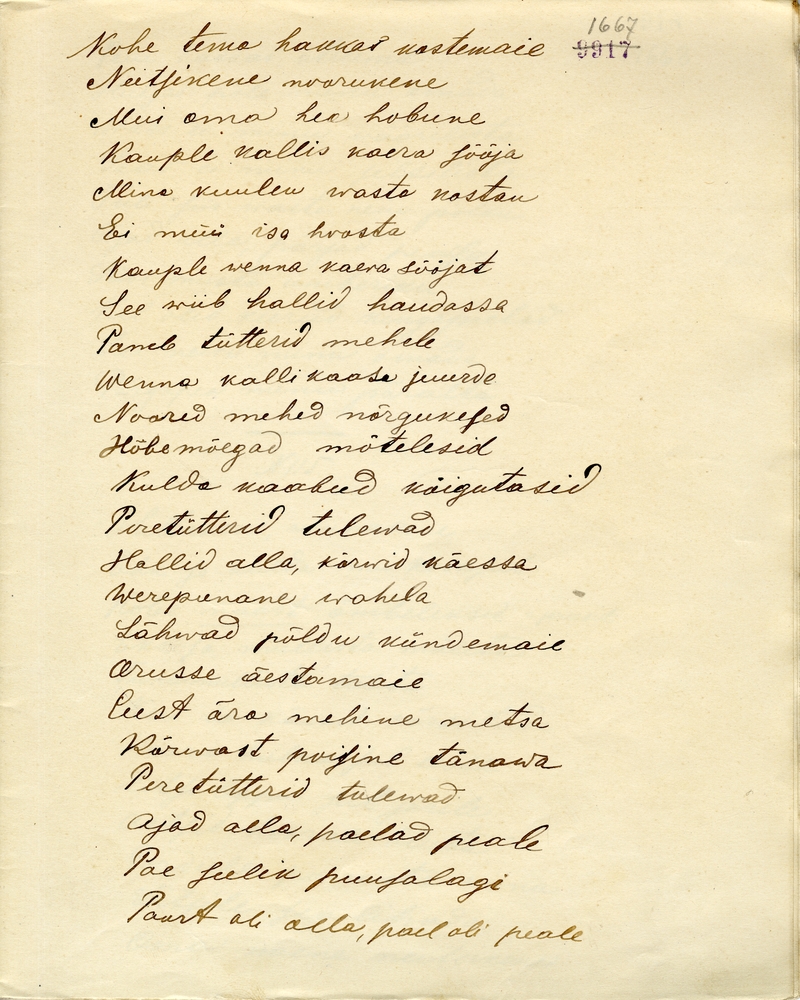 1667
9917
Kohe tema hakkas kostemaie
Neitsikene noorukene
Müi oma hea hobune
Kauple kallis kaera sööja
Mina kuulen wasta kostan
Ei müü isa hoosta
Kauple wenna kaera sööjat
See wiib hallid haudassa
Paneb tütterid mehele
Wenna kallikaasa juurde
Noored mehed nõrgukesed
Hõbemõegad mõtelesid
Kulda kaabud kõigutasid
Peretütterid tulewad
Hallid alla, kõrwid käessa
Werepunane wahela
Lähwad põldu kündemaie
Orusse äestamaie
Eest ära mehine metsa
Kõrwast poisine tänawa
Peretütterid tulewad
Ajad alla, paelad peale
Poe seelik puusalagi
Poort oli alla, pael oli peale